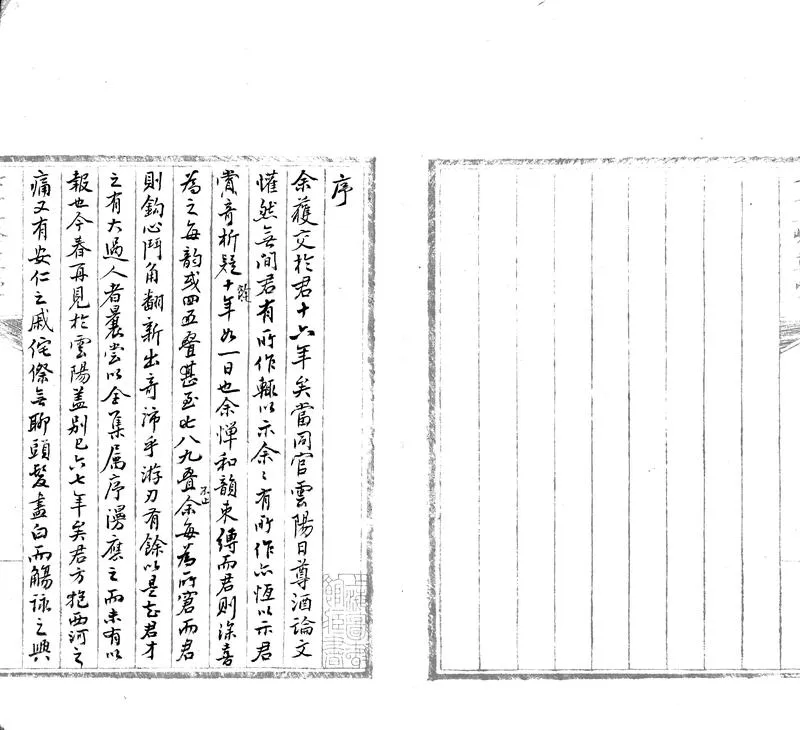 序
余獲交於君十六年矣當同官雲陽日尊酒論文
懽然無間君有所作輒以示余〻有所作亦恆以示君
賞奇析疑十年如一日也余憚和韻束縛而君則深喜
為之每韵或四五疊甚至七八九疊不止余每為所窘而君
則鉤心鬥角翻新出奇沛乎游刃有餘以是知君才
之有大過人者曩嘗以全集属序漫應之而未有以
報也今春再見於雲陽盖别已六七年矣君方抱西河之
痛又有安仁之戚侘傺無聊頭髮盡白而觴詠之興